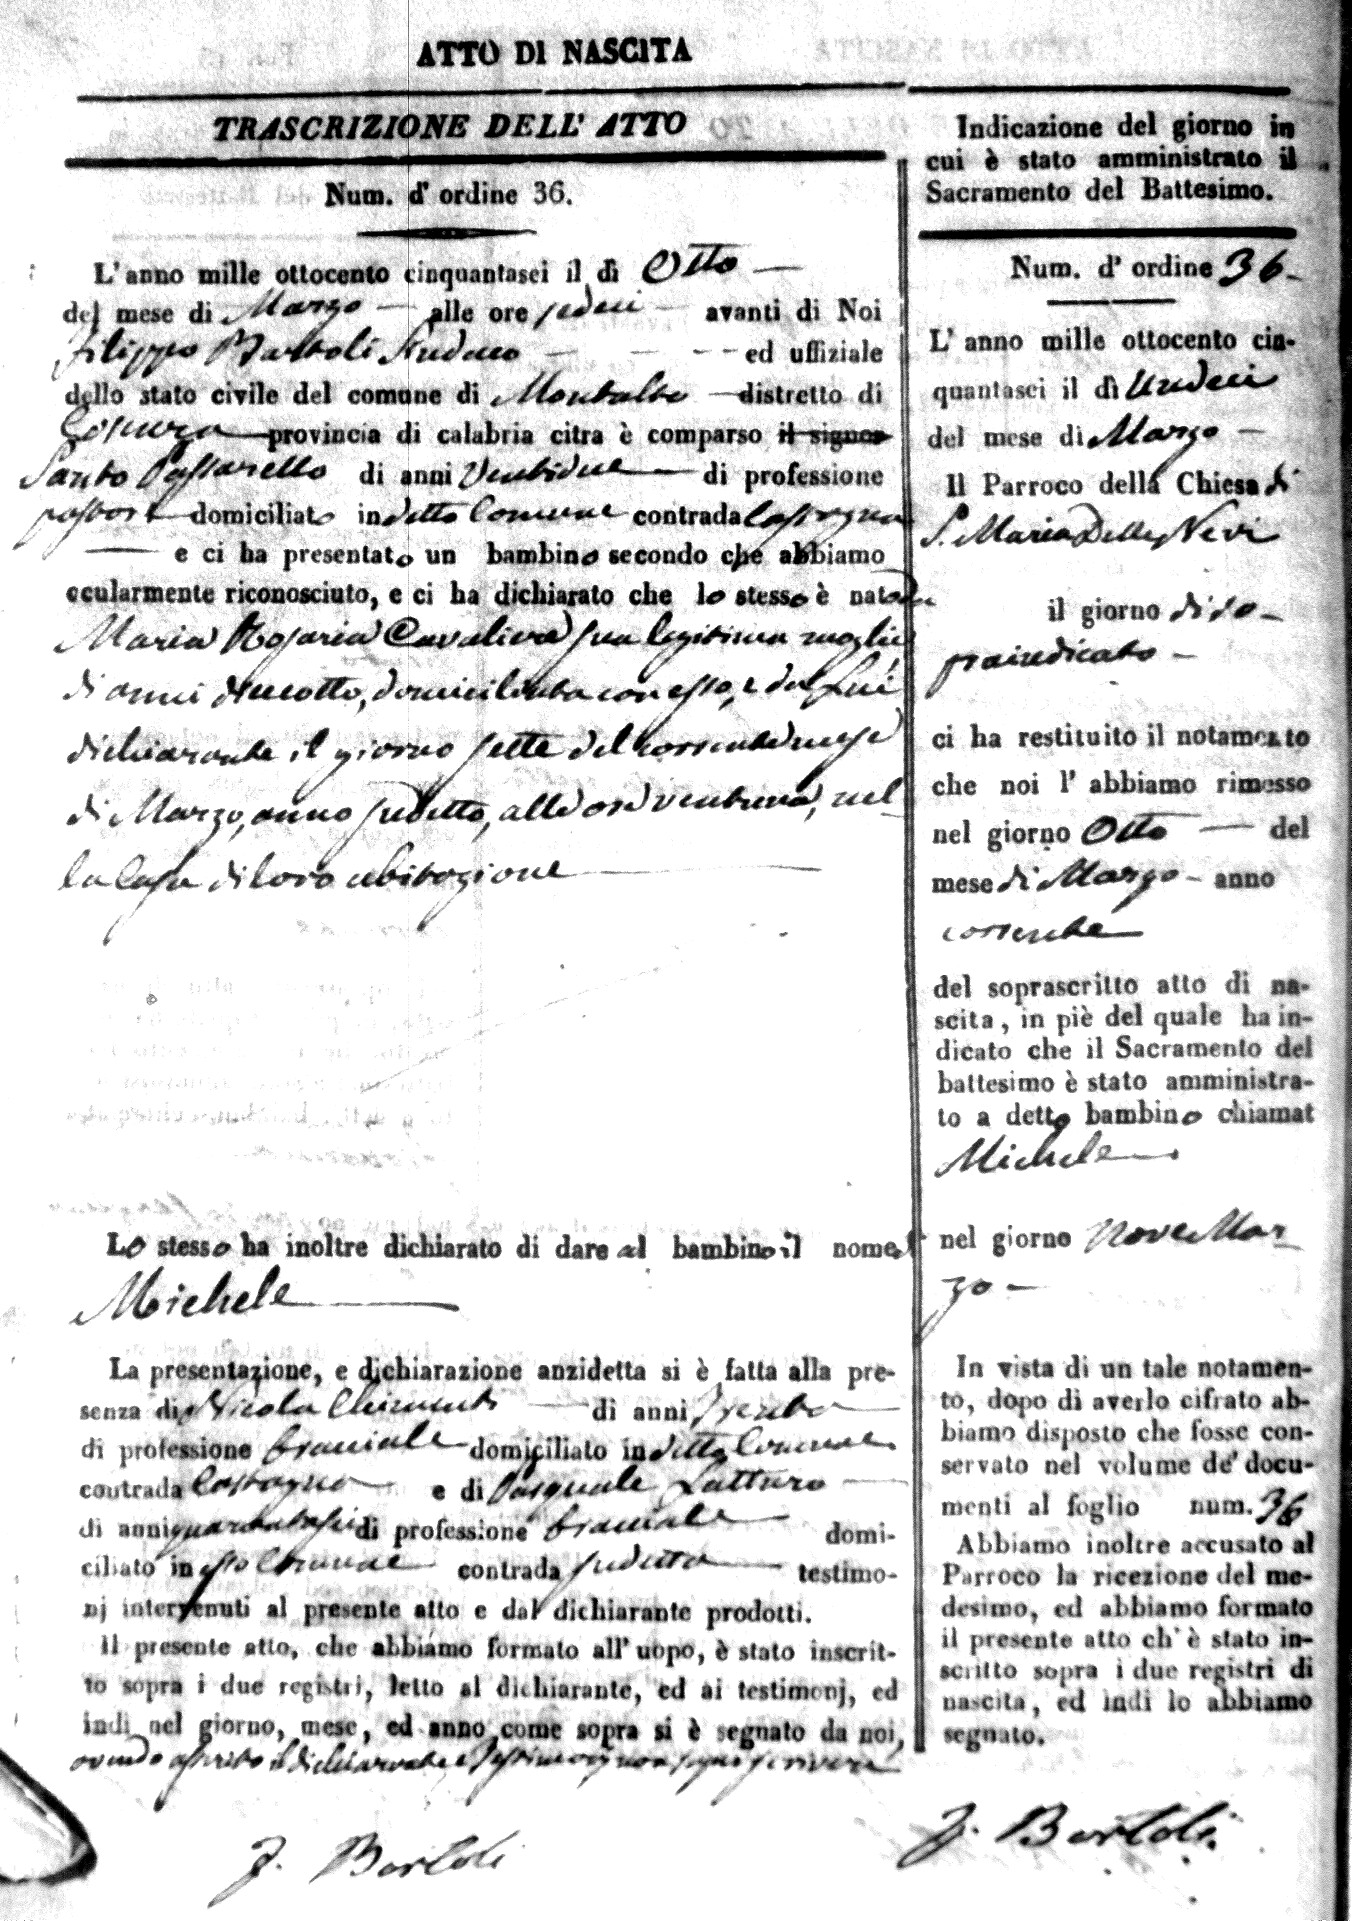 ATTO DI NASCITA
TRASCRIZIONE DELL' ATTO
Num. d' ordine 36.
L' anno mille ottocento cinquantasei il dì Otto
del mese di Marzo alle ore sedeci avanti di Noi
Filippo Bartoli Sindaco ed uffiziale
dello stato civile del comune di Montalto distretto di
Cosenza provincia di calabria citra è comparso il signor
Santo Passarello di anni Ventidue di professione
pastore domiciliato in detto Comune contrada Caspagna
e ci ha presentato un bambino secondo che abbiamo
ocularmente riconosciuto, e ci ha dichiarato che lo stesso è nato da
Maria Rosaria Cavaliere sua legitima moglie
di anni diciotto, domiciliata con esso, e dal Lui
dichiarante il giorno sette del corrente mese
di Marzo, anno sudetto, alle ore ventuna, nel-
la Casa di loro abitazione
Lo stesso ha inoltre dichiarato di dare al bambino il nome di
Michele
La presentazione, e dichiarazione anzidetta si è fatta alla pre-
senza di Nicola Chimenti di anni Trenta
di professione bracciale domiciliato in detto Comune
contrada e di Pasquale Latturo
di anni quarantasei di professione bracciale domi-
ciliato in esso Comune contrada sudetta testimo-
nj intervenuti al presente atto e dal dichiarante prodotti.
Il presente atto, che abbiamo formato all' uopo, è stato inscrit-
to sopra i due registri, letto al dichiarante, ed ai testimonj, ed
indi nel giorno, mese, ed anno come sopra si è segnato da noi,
avendo asserito il dichiarante e Testimonj non saper scrivere
F. Bartoli
Indicazione del giorno in
cui è stato amministrato il
Sacramento del Battesimo.
Num. d' ordine 36
L' anno mille ottocento cin-
quantasei il dì Undeci
del mese di Marzo
Il Parroco della Chiesa di
S. Maria Della Nevi
il giorno di so-
praindicato
ci ha restituito il notamento
che noi l' abbiamo rimesso
nel giorno Otto del
mese di Marzo anno
corrente
del soprascritto atto di na-
scita, in piè del quale ha in-
dicato che il Sacramento del
battesimo è stato amministra-
to a detto bambino chiamat
Michele
nel giorno Nove Mar-
zo
In vista di un tale notamen-
to, dopo di averlo cifrato ab-
biamo disposto che fosse con-
servato nel volume de' docu-
menti al foglio num. 36
Abbiamo inoltre accusato al
Parroco la ricezione del me-
desimo, ed abbiamo formato
il presente atto ch' è stato in-
scritto sopra i due registri di
nascita, ed indi lo abbiamo
segnato.
F. Bartoli